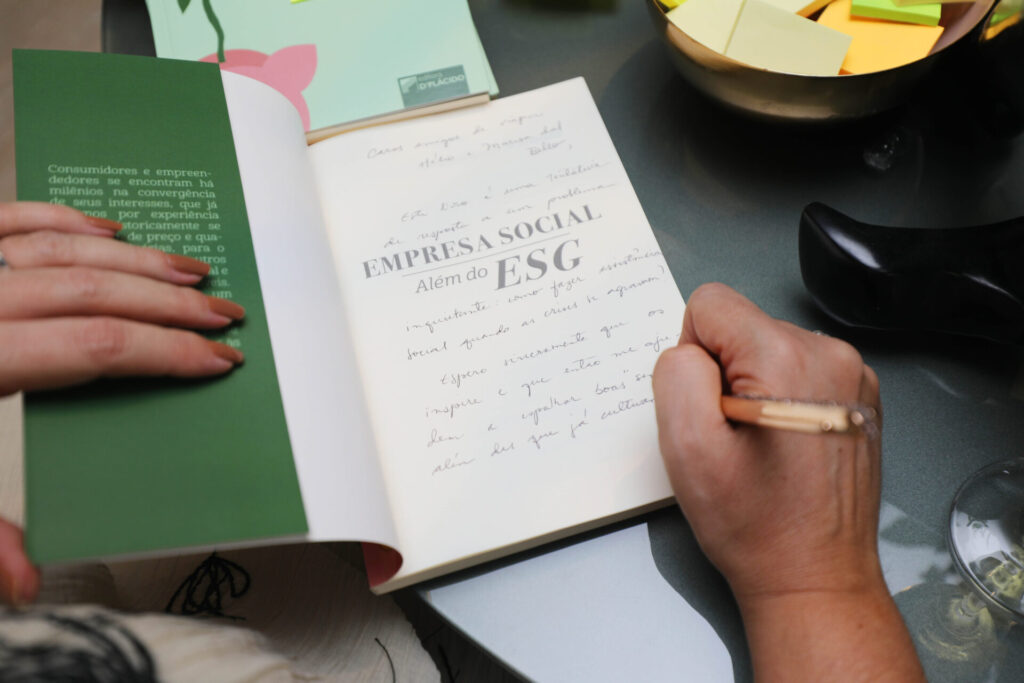 editora
D'PLÁCIDO
Consumidores e empreen-
dedores se encontram há
milênios na convergência
de seus interesses, que já
por experiência
storicamente se
de preço e qua-
para o
outros
e
um
às
Caros amigos de
Hélio e Marisa
Este livro é uma tentativa
de resposta a um problema
EMPRESA SOCIAL
Além do ESG
inquietante: como fazer assistência
social quando as crises se agravam?
Espero sinceramente que os
inspire e que então me aju
dem a espalhar boas
além das que já